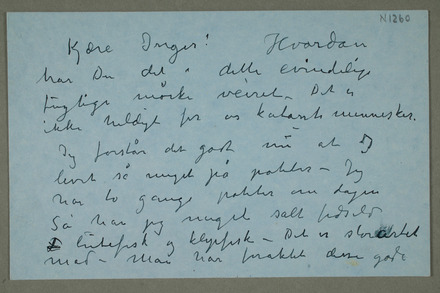 N1260
Kjære Inger! Hvordan
har Du det i dette evindelige
fugtige mørke veiret – Det er
ikke heldigt for os katarrh mennesker.
Jeg forstår det godt nu at I
levet så meget på poteter – Jeg
har to gange poteter om dagen
Så har jeg meget salt
lutefisk og klipfisk – Det er storartet
mad – Man har den gode